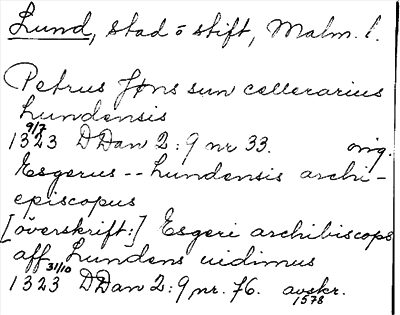 Lund, stad o stift, Malm. l.
Petrus Jøns sun cellerarius
lundensis
9/7
1323 DDan 2:9 nr 33. orig.
Esgerus -- lundensis archi-
episcopus
[överskrift:] Esgeri archibiscops
aff Lundens uidimus
31/10
1323 DDan 2:9 nr. 76. avskr.
1578